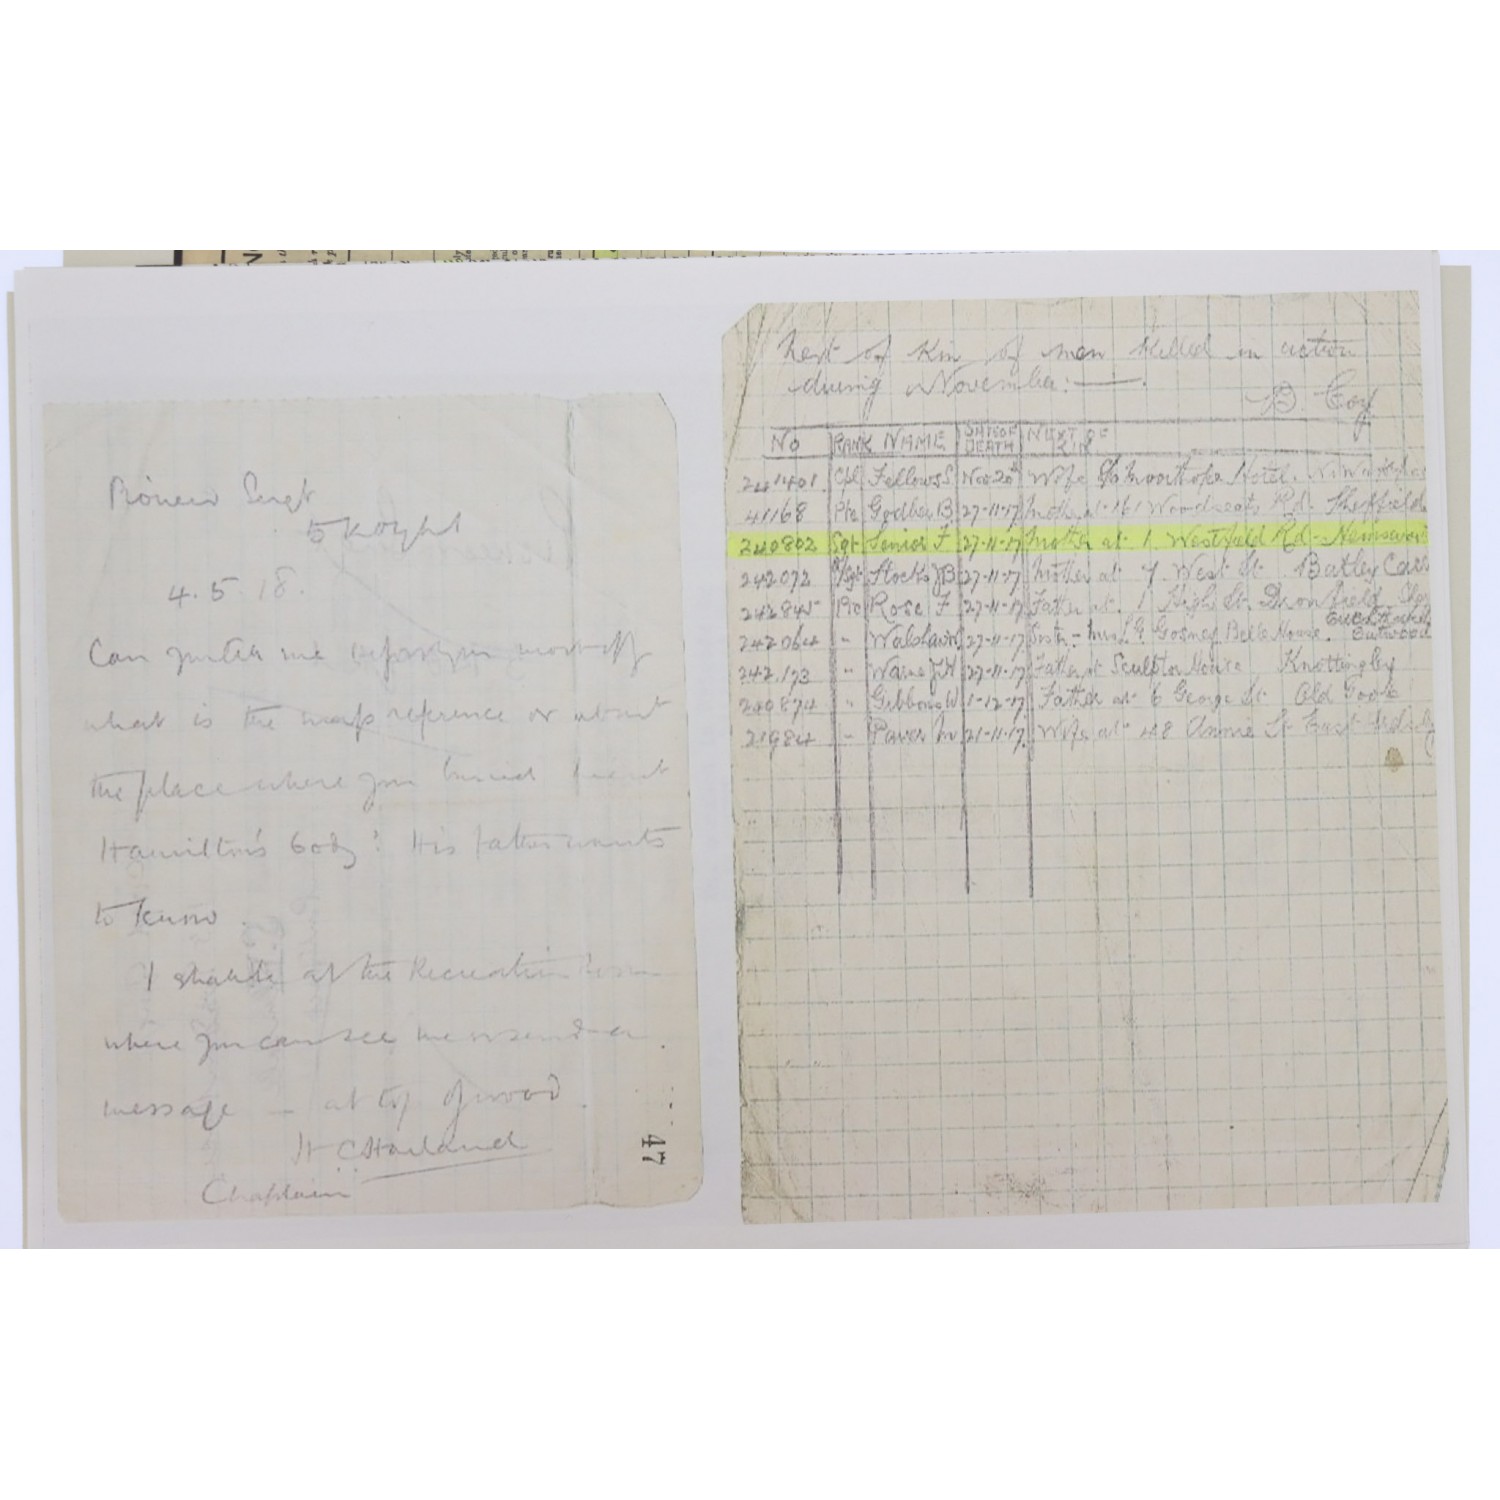 Pioneer Sergt
5 KOYLI
4.5.18.
Can you tell me before you move off
what is the map reference or about
the place where you buried Lieut
Hamilton's body? His father wants
to know.
I shall be at the Recreation Room
where you can see me or send a
message — at top of wood.
H C Harland
Chaplain
47
Next of Kin of men killed in action
during November:—.
B. Coy
No RANK NAME DATE OF DEATH NEXT OF KIN
241401. Cpl Fellows S Nov 20th Wife Moorthorpe Hotel.
41168 Pte Godber B 27-11-17 Mother at 161 Woodseats Rd. Sheffield
240802 Sgt Senior F 27-11-17 Mother at 1 Westfield Rd - Hemswor
242072 Stocks J B 27-11-17 Mother at 7 West St. Batley Carr
242845 Pte Rose F 27-11-17 Father at 1 High St. Dronfield
242064 " Walshaw 27-11-17 Sister - Mrs L G Gosney Belle House.
242173 " Warne J H 27-11-17 Father at Sculptor House Knottingley
240874 " Gibbons W 1-12-17 Father at 6 George St Old Goole
21984 " Paver M 21-11-17. Wife at 48 Annie St East